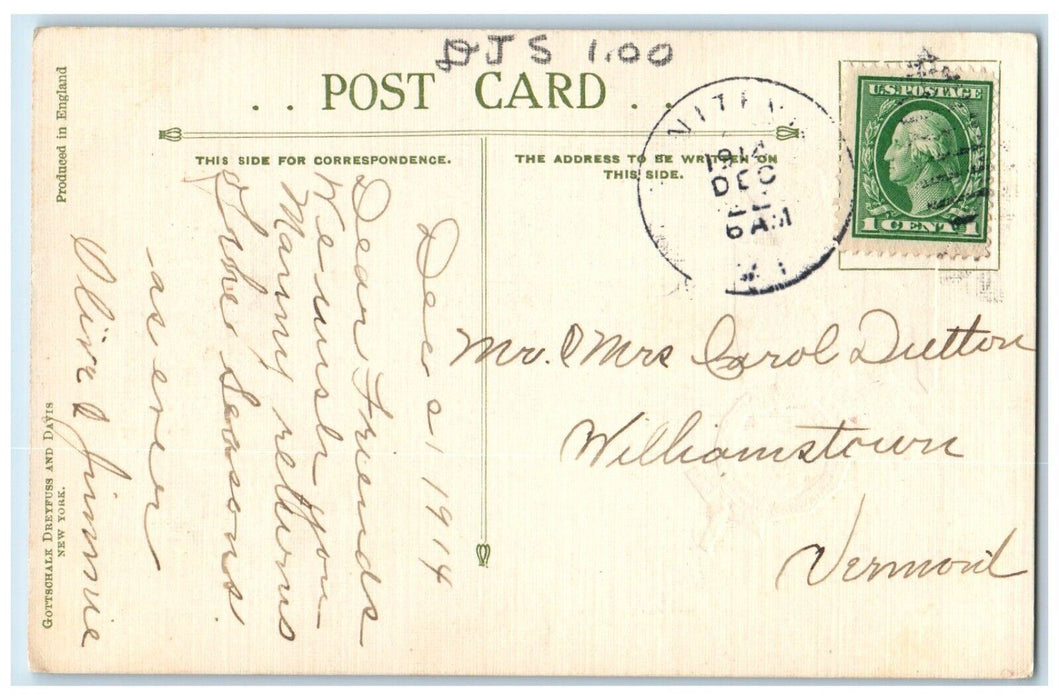 DJS 1.00
. . POST CARD . .
THIS SIDE FOR CORRESPONDENCE.
THE ADDRESS TO BE WRITTEN ON
THIS SIDE.
1914
DEC
22
6 AM
U.S. POSTAGE
1 CENT 1
Dec 21 1914
Dear Friends
We wish you
Many returns
of the Seasons.
as ever
Olive & Jimmie
Mr. & Mrs Carol Dutton
Williamstown
Vermont
Produced in England
GOTTSCHALK DREYFUSS AND DAVIS
NEW YORK.